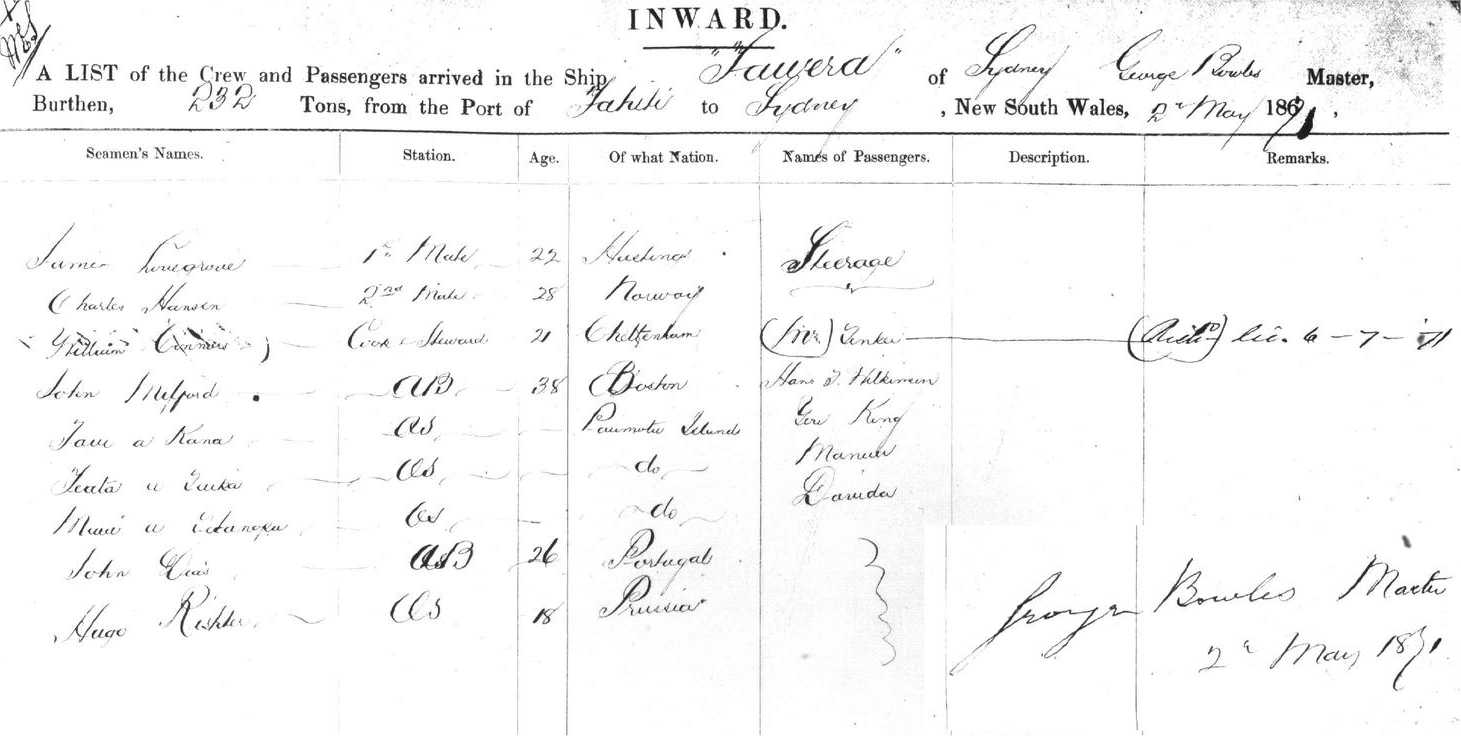 INWARD.
A LIST of the Crew and Passengers arrived in the Ship "Tawera" of Sydney George Bowles Master,
Burthen, 232 Tons, from the Port of Tahiti to Sydney, New South Wales, 2nd May 1871,
Seamen's Names. Station. Age. Of what Nation. Names of Passengers. Description. Remarks.
James Lovegrove 1st Mate 22 Hastings Steerage
Charles Hansen 2nd Mate 28 Norway
William Connors Cook & Steward 21 Cheltenham (Mr) (Richd) lic. 6-7-71
John Milford AB 38 Boston Hans J. Wilkinson
Taui a Kana OS Paumotu Islands Geo King
a OS do Manuu
a OS do Davida
John AB 26 Portugal
Hugo Rishter OS 18 Prussia
George Bowles Master
2nd May 1871